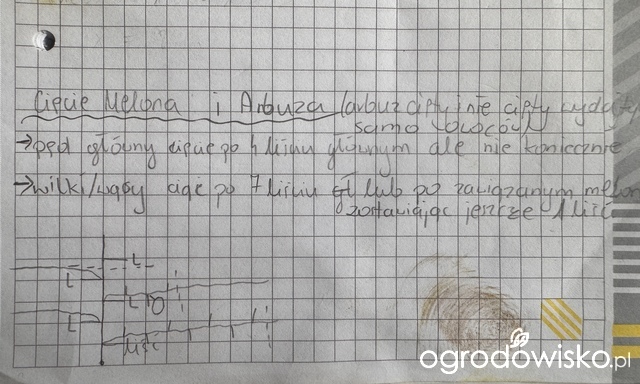 Cięcie Melona i Arbuza (arbuz cięty i nie cięty wydaje
samo owoców)
→ pęd główny cięcie po 4 liściu głównym ale nie koniecznie
→ wilki/wąsy ciąć po 7 liściu lub po zawiązanym melon
zostawiając jeszcze 1 liść
L
L
L
L
O
liść
ogrodowisko.pl